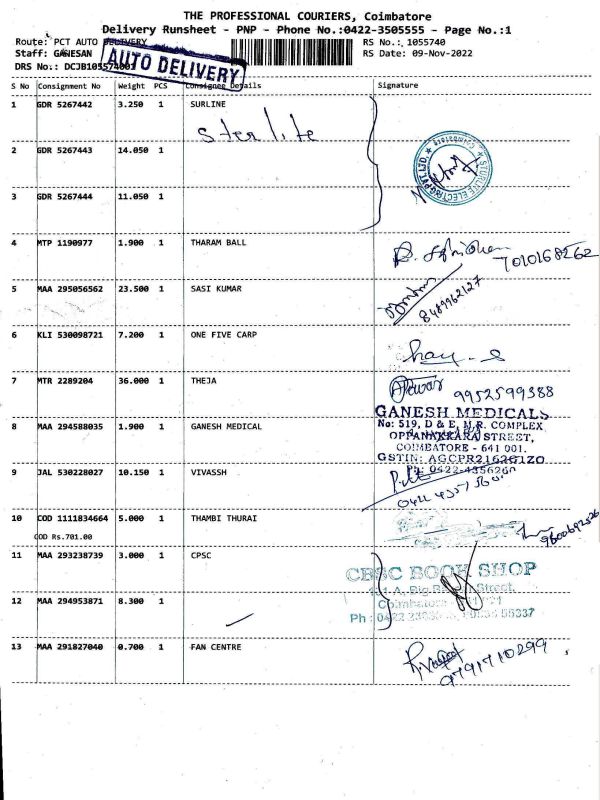 THE PROFESSIONAL COURIERS, Coimbatore
Delivery Runsheet - PNP - Phone No.:0422-3505555 - Page No.:1
Route: PCT AUTO DELIVERY
RS No.: 1055740
Staff: GANESAN
RS Date: 09-Nov-2022
DRS No.: DCJB105574001
AUTO DELIVERY
S No Consignment No Weight PCS Consignee Details Signature
1 GDR 5267442 3.250 1 SURLINE
Sterlite
2 GDR 5267443 14.050 1
3 GDR 5267444 11.050 1
4 MTP 1190977 1.900 1 THARAM BALL
7010168262
5 MAA 295056562 23.500 1 SASI KUMAR
8489962127
6 KLI 530098721 7.200 1 ONE FIVE CARP
7 MTR 2289204 36.000 1 THEJA
9952599388
8 MAA 294588035 1.900 1 GANESH MEDICAL
GANESH MEDICALS
No: 519, D & E, M.R. COMPLEX
OPPANAKKARA STREET,
COIMBATORE - 641 001.
GSTIN: AGCPR2162G1ZO
Ph: 0422-4356260
9 JAL 530228027 10.150 1 VIVASSH
10 COD 1111834664 5.000 1 THAMBI THURAI
COD Rs.701.00
11 MAA 293238739 3.000 1 CPSC
CBSC BOOK SHOP
Street,
Coimbatore
12 MAA 294953871 8.300 1
13 MAA 291827040 0.700 1 FAN CENTRE
9791710299